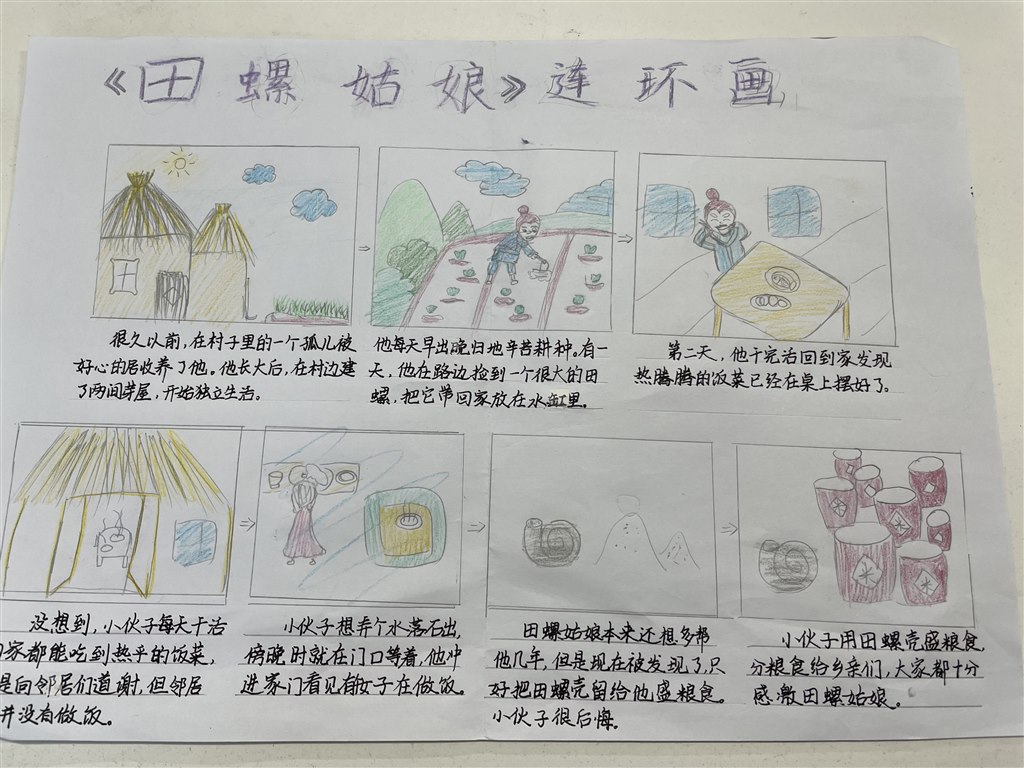 《田螺姑娘》连环画
很久以前,在村子里的一个孤儿被
好心的居收养了他。他长大后,在村边建
了两间芽屋,开始独立生活。
他每天早出晚归地辛苦耕种。有一
天,他在路边捡到一个很大的田
螺,把它带回家放在水缸里。
第二天,他干完活回到家发现
热腾腾的饭菜已经在桌上摆好了。
没想到,小伙子每天干活
回家都能吃到热乎的饭菜,
是向邻居们道谢,但邻居
并没有做饭。
小伙子想弄个水落石出,
傍晚时就在门口等着,他冲
进家门看见有女子在做饭。
田螺姑娘本来还想多帮
他几年,但是现在被发现了,只
好把田螺壳留给他盛粮食。
小伙子很后悔。
米
米
米
米
米
米
米
小伙子用田螺壳盛粮食,
分粮食给乡亲们,大家都十分
感激田螺姑娘。